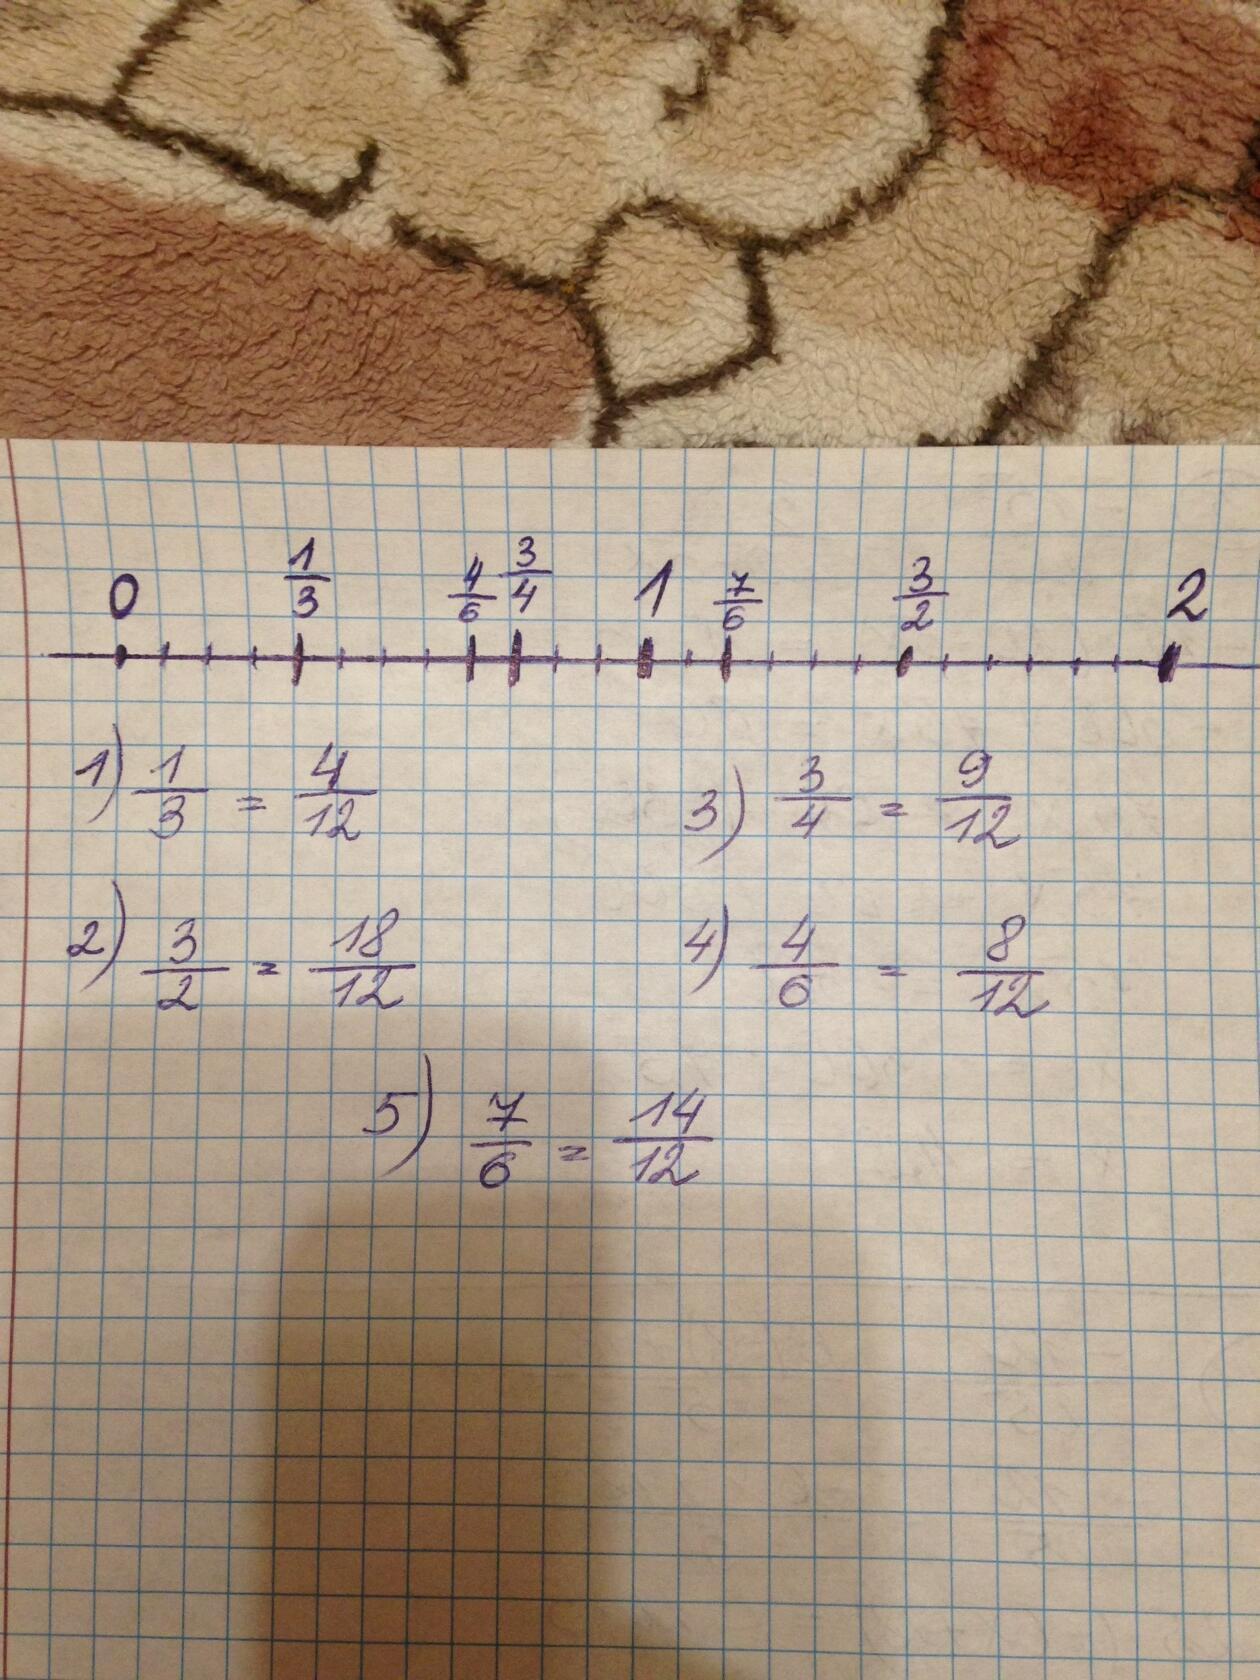 0 1/3 4/6 3/4 1 7/6 3/2 2
1) 1/3 = 4/12 3) 3/4 = 9/12
2) 3/2 = 18/12 4) 4/6 = 8/12
5) 7/6 = 14/12